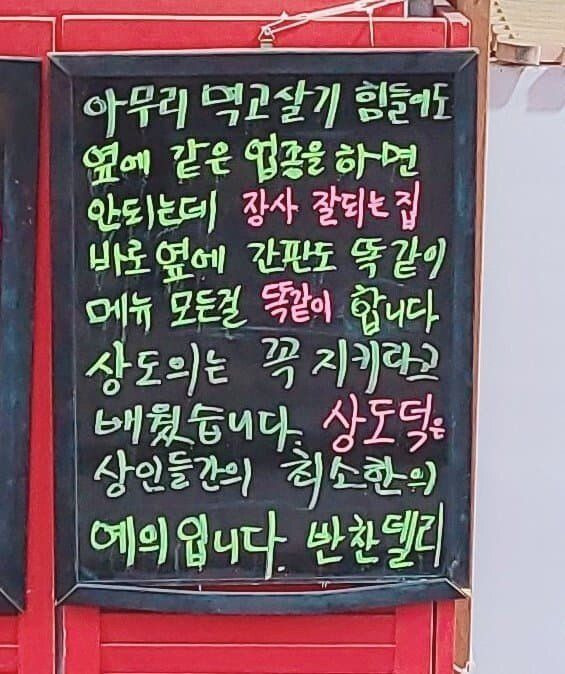 아무리 먹고살기 힘들어도
옆에 같은 업종을 하면
안되는데 장사 잘되는 집
바로 옆에 간판도 똑같이
메뉴 모든걸 똑같이 합니다
상도의는 꼭 지키라고
배웠습니다. 상도덕은
상인들간의 최소한의
예의입니다. 반찬델리